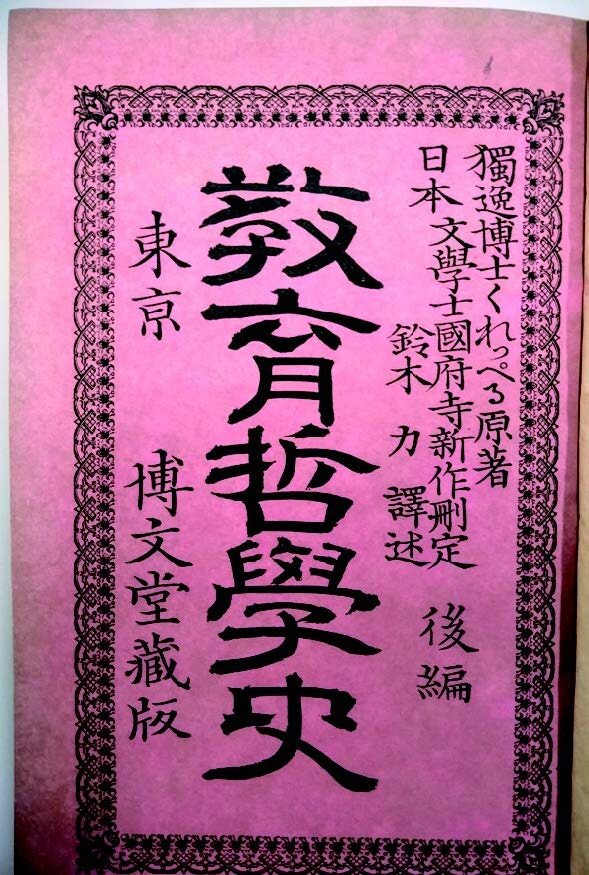 獨逸博士くれっぺる原著
日本文學士國府寺新作刪定
鈴木力譯述
後編
敎育哲學史
東京
博文堂藏版